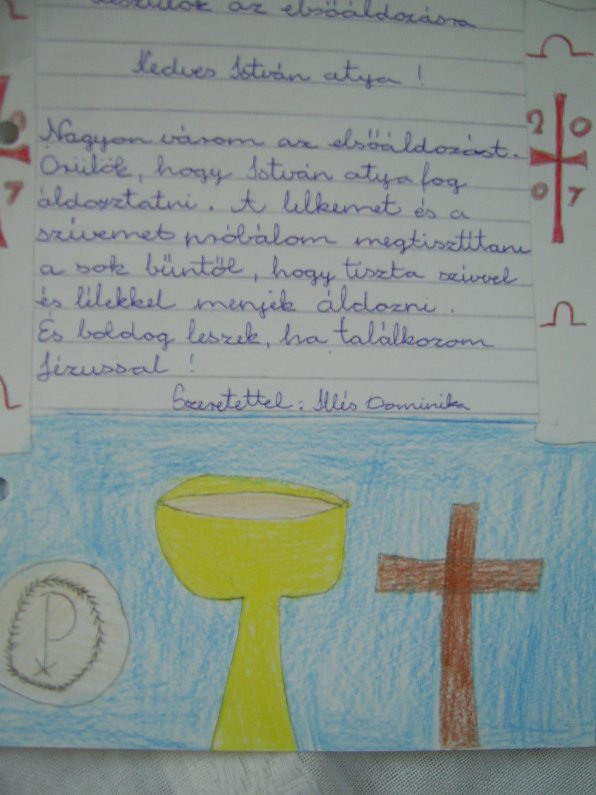 készülök az elsőáldozásra
Kedves István atya !
Nagyon várom az elsőáldozást.
Örülök, hogy István atya fog
áldoztatni. A lelkemet és a
szívemet próbálom megtisztítani
a sok bűntől, hogy tiszta szívvel
és lélekkel menjek áldozni.
És boldog leszek, ha találkozom
Jézussal !
Szeretettel: Illés Dominika
2 0
0 7
7